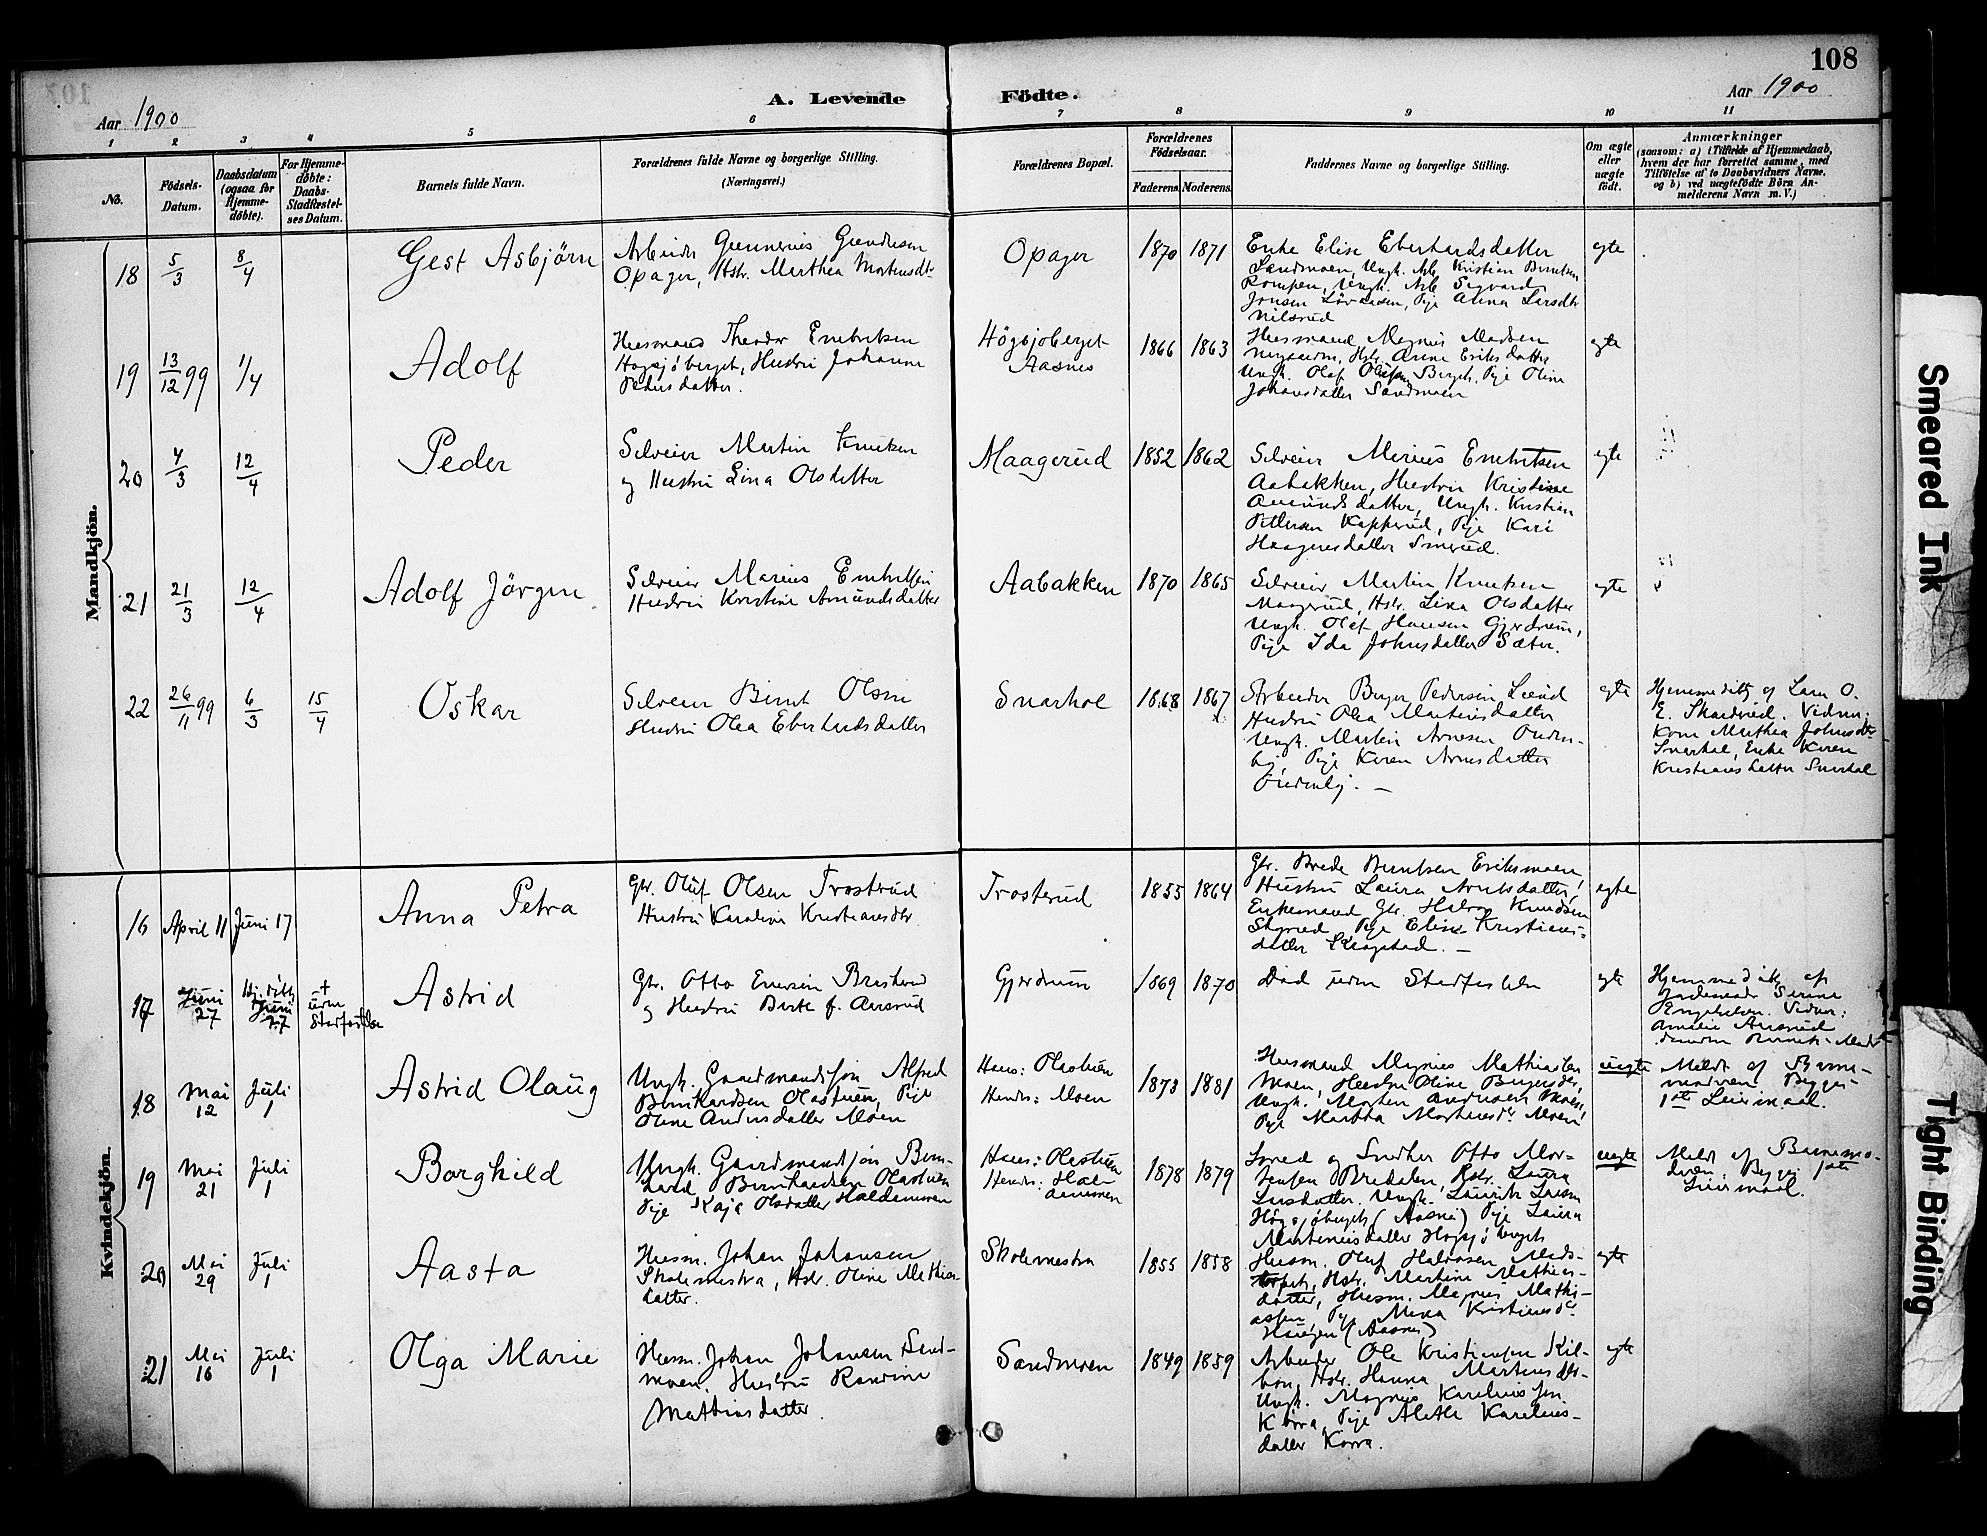 108
Aar 1900
A. Levende Födte.
Aar 1900
1 2 3 4 5 6 7 8 9 10 11
No.
Födsels-Datum.
Daabsdatum (ogsaa for Hjemme-döbte).
For Hjemme-döbte: Daabs-Stadfæstel-ses Datum.
Barnets fulde Navn.
Forældrenes fulde Navne og borgerlige Stilling.
(Næringsvei.)
Forældrenes Bopæl.
Forældrenes Födselsaar.
Faderens. Moderens.
Faddernes Navne og borgerlige Stilling.
Om ægte eller uægte födt.
Anmærkninger
(saasom: a) i Tilfælde af Hjemmedaab,
hvem der har forrettet samme, med
Tilföielse af to Daabsvidners Navne,
og b) ved uægtefödte Börn An-
melderens Navn m. V.)
Mandkjön.
18 5/3 8/4 Gest Asbjörn
Opager, Hstr. Marthea Mortensdtr
Opager 1870 1871
Enke Elise Eberhardsdatter
Sandmoen, Ungk. Arb. Kristian Berntsen
Rompen, Ungk. Arb. Sigvard
Jonsen Lövaasen, Pige Anna Larsdtr
Nilsrud
egte
19 13/12 99 1/4 Adolf
Husmand Theodor Embretsen
Högsjöberget, Hustru Johanne
Pedersdatter.
Högsjöberget
Aasnes
1866 1863
Husmand Magnus Madsen
Hstr. Anne Eriksdatter
Ungk. Olaf Olsen Bergh. Pige Oline
Johansdatter Sandmoen
egte
20 4/3 12/4 Peder
Selveier Martin Knutsen
og Hustru Lina Olsdatter
Maagerud 1852 1862
Selveier Marius Embretsen
Aabakken, Hustru Kristine
Amundsdatter, Ungk. Kristian
Pettersen Kapperud, Pige Kari
Haagensdatter Smerud.
egte
21 21/3 12/4 Adolf Jörgen
Selveier Marius Embretsen
Hustru Kristine Amundsdatter
Aabakken 1870 1865
Selveier Martin Knutsen
Maagerud, Hstr. Lina Olsdatter
Ungk. Olaf Hansen Gjerdrum,
Pige Ida Johnsdatter Sæter.
egte
22 26/11 99 6/3 15/4 Oskar
Selveier Bernt Olsen
Hustru Olea Eberhardsdatter
Snarhol 1868 1867
Arbeider Berger Pedersen Lund
Hustru Olea Martinusdatter
Ungk. Martin Arnesen Ouden-
by, Pige Karen Arnesdatter
Oudenby. —
egte
Hjemmedöbt af Lars O.
E. Skardrud. Vidner:
Kone Mathea Johnsdtr
Snarhol, Enke Karen
Kristiansdatter Snarhol
Kvindekjön.
16 April 11 Juni 17 Anna Petra
Gbr. Oluf Olsen Trosterud
Hustru Karoline Kristiansdtr
Trosterud 1855 1864
Gbr. Brede Berntsen Eriksmoen,
Hustru Laura Arntsdatter,
Enkemand Gbr. Halvor Knudsen
Pige Elise Kristians-
datter Skogstad. —
egte
17 Juni 27 Hj. döbt Juni 27 + uden Stadfæstelse Astrid
Gbr. Otto Emersen Brusterud
og Hustru Berte f. Aasrud
Gjerdrum 1869 1870
Död uden Stadfæstelse
egte
Hjemmedöbt af
Jordemoder Serine
Engebretsen. Vidner:
Amalie Aasrud
18 Mai 12 Juli 1 Astrid Olaug
Ungk. Gaardmandssön Alfred
Bernhardsen Olastuen, Pige
Oline Andersdatter Moen
Hans: Olastuen
Hendes: Moen
1873 1881
Husmand Magnus Mathiassen
Moen, Hustru Oline Bergersdtr,
Ungk. Morten Andersen Moen,
Pige Martha Mortensdtr Moen
uegte
Meldt af Barne-
moderen. Begges
1ste Leiermaal.
19 Mai 21 Juli 1 Borghild
Ungk. Gaardmandssön Bern-
hard Bernhardsen Olastuen
Pige Kaja Olsdatter Haldammen
Hans: Olastuen
Hendes: Hal-
dammen
1878 1879
Smed og Snedker Otto Mor-
tensen Bredalen, Hstr. Laura
Larsdatter. Ungk. Laurits Larsen
Högsjöberget (Aasnes) Pige Laura
Martiniusdatter Högsjöberget
uegte
Meldt af Barnemo-
deren. Begges 1ste
Leiermaal.
20 Mai 29 Juli 1 Aasta
Husm. Johan Johansen
Skolemestra, Hstr. Oline Mathias-
datter.
Skolemestra 1855 1858
Husm. Oluf Halvorsen Mads-
torpet, Hstr. Martine Mathias-
datter, Husm. Magnus Mathi-
assen, Pige Mina Kristiansdtr
Haugen (Aasnes)
egte
21 Mai 16 Juli 1 Olga Marie
Husm. Johan Johansen Sand-
moen. Hustru Randine
Mathiasdatter.
Sandmoen 1849 1859
Arbeider Ole Kristiansen Kil-
bon, Hstr. Hanna Martinsdtr-
Ungk. Magnus Karelius sen
Korra, Pige Alethe Karelius-
datter Korra.
egte
Smeared Ink
Tight Binding